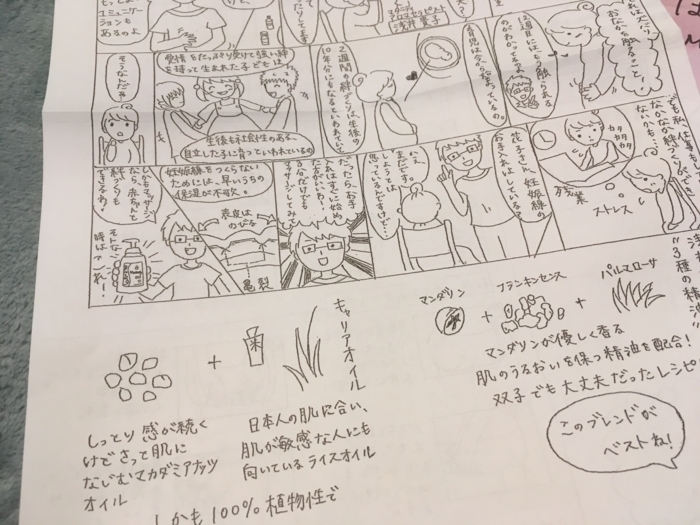 もっとも
コミュニケー
ションも
あるのよ
アロマセラピスト
浅井貴子
おなかを触ること！
12週目にはもう触られる
のがわかってるの？
育児は今から始まっているの
2週間の絆づくりは生後の
10年分にもなるといわれている
愛情をたっぷり受けて強い絆
を持って生まれた子どもは
生後も社会性のある、
自立した子に育つといわれているの
そうなんだぁ
でも私、仕事も
なかなか絆づくりができ
ないかも…
カタ
カタ
カタ
残業
ストレス
花子さん、妊娠線の
お手入れはしている？
いえ
まだです。
しようとは
思っているんですけど…
だったら、お手
入れはすぐに始め
た方がいいわ！
3分だけでも
マッサージしてみて
妊娠線をつくらない
ためには、早いうちの
保湿が不可欠。
表皮は
のびる
亀裂
しかもマッサージ
なら、赤ちゃんと
絆づくりも
できちゃう！
そんな
時は
これ！
"3種の精油"
マンダリン
+
フランキンセンス
+
パルマローサ
マンダリンが優しく香る
肌のうるおいを保つ精油を配合！
双子でも大丈夫だったレシピ
このブレンドが
ベストね！
キャリアオイル
+
しっとり感が続く
けどさっと肌に
なじむマカダミアナッツ
オイル
日本人の肌に合い、
肌が敏感な人にも
向いているライスオイル
しかも100%植物性で